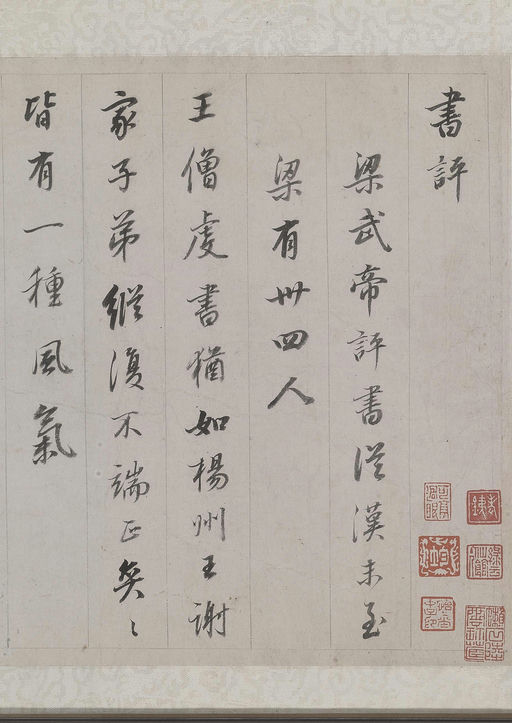 書評
梁武帝評書從漢末至
梁有卅四人
王僧虔書猶如楊州王謝
家子弟縱復不端正奕〻
皆有一種風氣